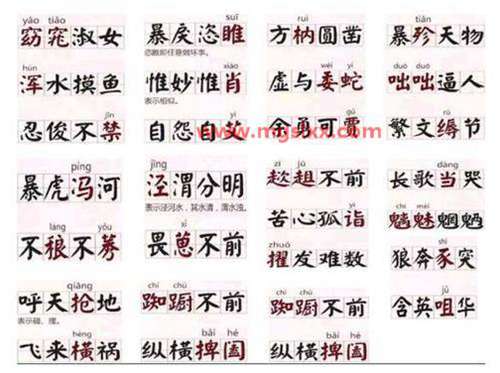 yǎo tiǎo
窈窕淑女
hún
浑水摸鱼
jīn
忍俊不禁
píng
暴虎冯河
láng yǒu
不稂不莠
qiāng
呼天抢地
表示碰、撞。
hèng
飞来横祸
suī
暴戾恣睢
恣睢即任意做坏事。
xiào
惟妙惟肖
表示相似。
yì
自怨自艾
jīng
泾渭分明
表示泾河水，其水清，渭水浊。
xǐ
畏葸不前
chí chú
踟蹰不前
bǎi hé
纵横捭阖
ruì
方枘圆凿
wēi yí
虚与委蛇
gǔ
余勇可贾
zī jū
趑趄不前
yì
苦心孤诣
zhuó
擢发难数
chí chú
踟蹰不前
bǎi hé
纵横捭阖
tiǎn
暴殄天物
duō duō
咄咄逼人
rù
繁文缛节
dàng
长歌当哭
chī mèi
魑魅魍魉
shǐ
狼奔豕突
jǔ
含英咀华